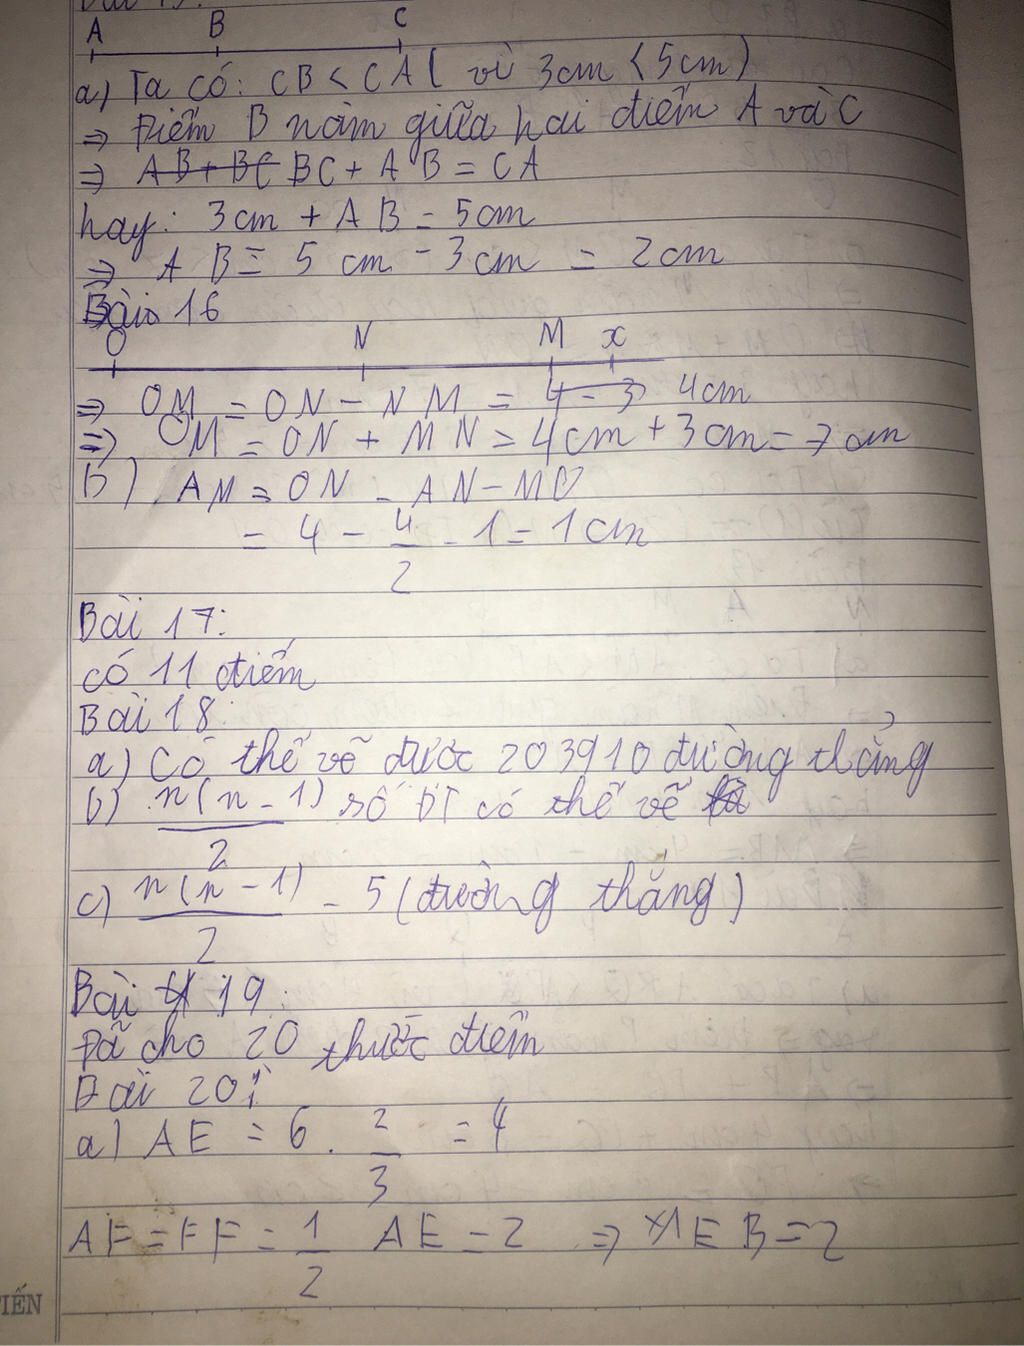 A B C
a) Ta có: CB < CA ( vì 3cm < 5cm )
⇒ Điểm B nằm giữa hai điểm A và C
⇒ AB + BC BC + AB = CA
hay: 3cm + AB = 5cm
⇒ AB = 5 cm - 3cm = 2cm
Bài 16
O N M x
⇒ OM = ON - NM = 4 - 3 4cm
⇒ OM = ON + MN = 4cm + 3cm = 7cm
B) AM = ON - AN - MO
= 4 - 4/2 - 1 = 1cm
Bài 17:
có 11 điểm
Bài 18:
a) Có thể vẽ được 203910 đường thẳng
b) n(n - 1)/2 số ĐT có thể vẽ là
c) n(n - 1)/2 - 5 (đường thẳng)
Bài 19:
Đã cho 20 thước điểm
Bài 20:
a) AE = 6 . 2/3 = 4
AF = FF = 1/2 AE = 2 ⇒ EB = 2
IẾN